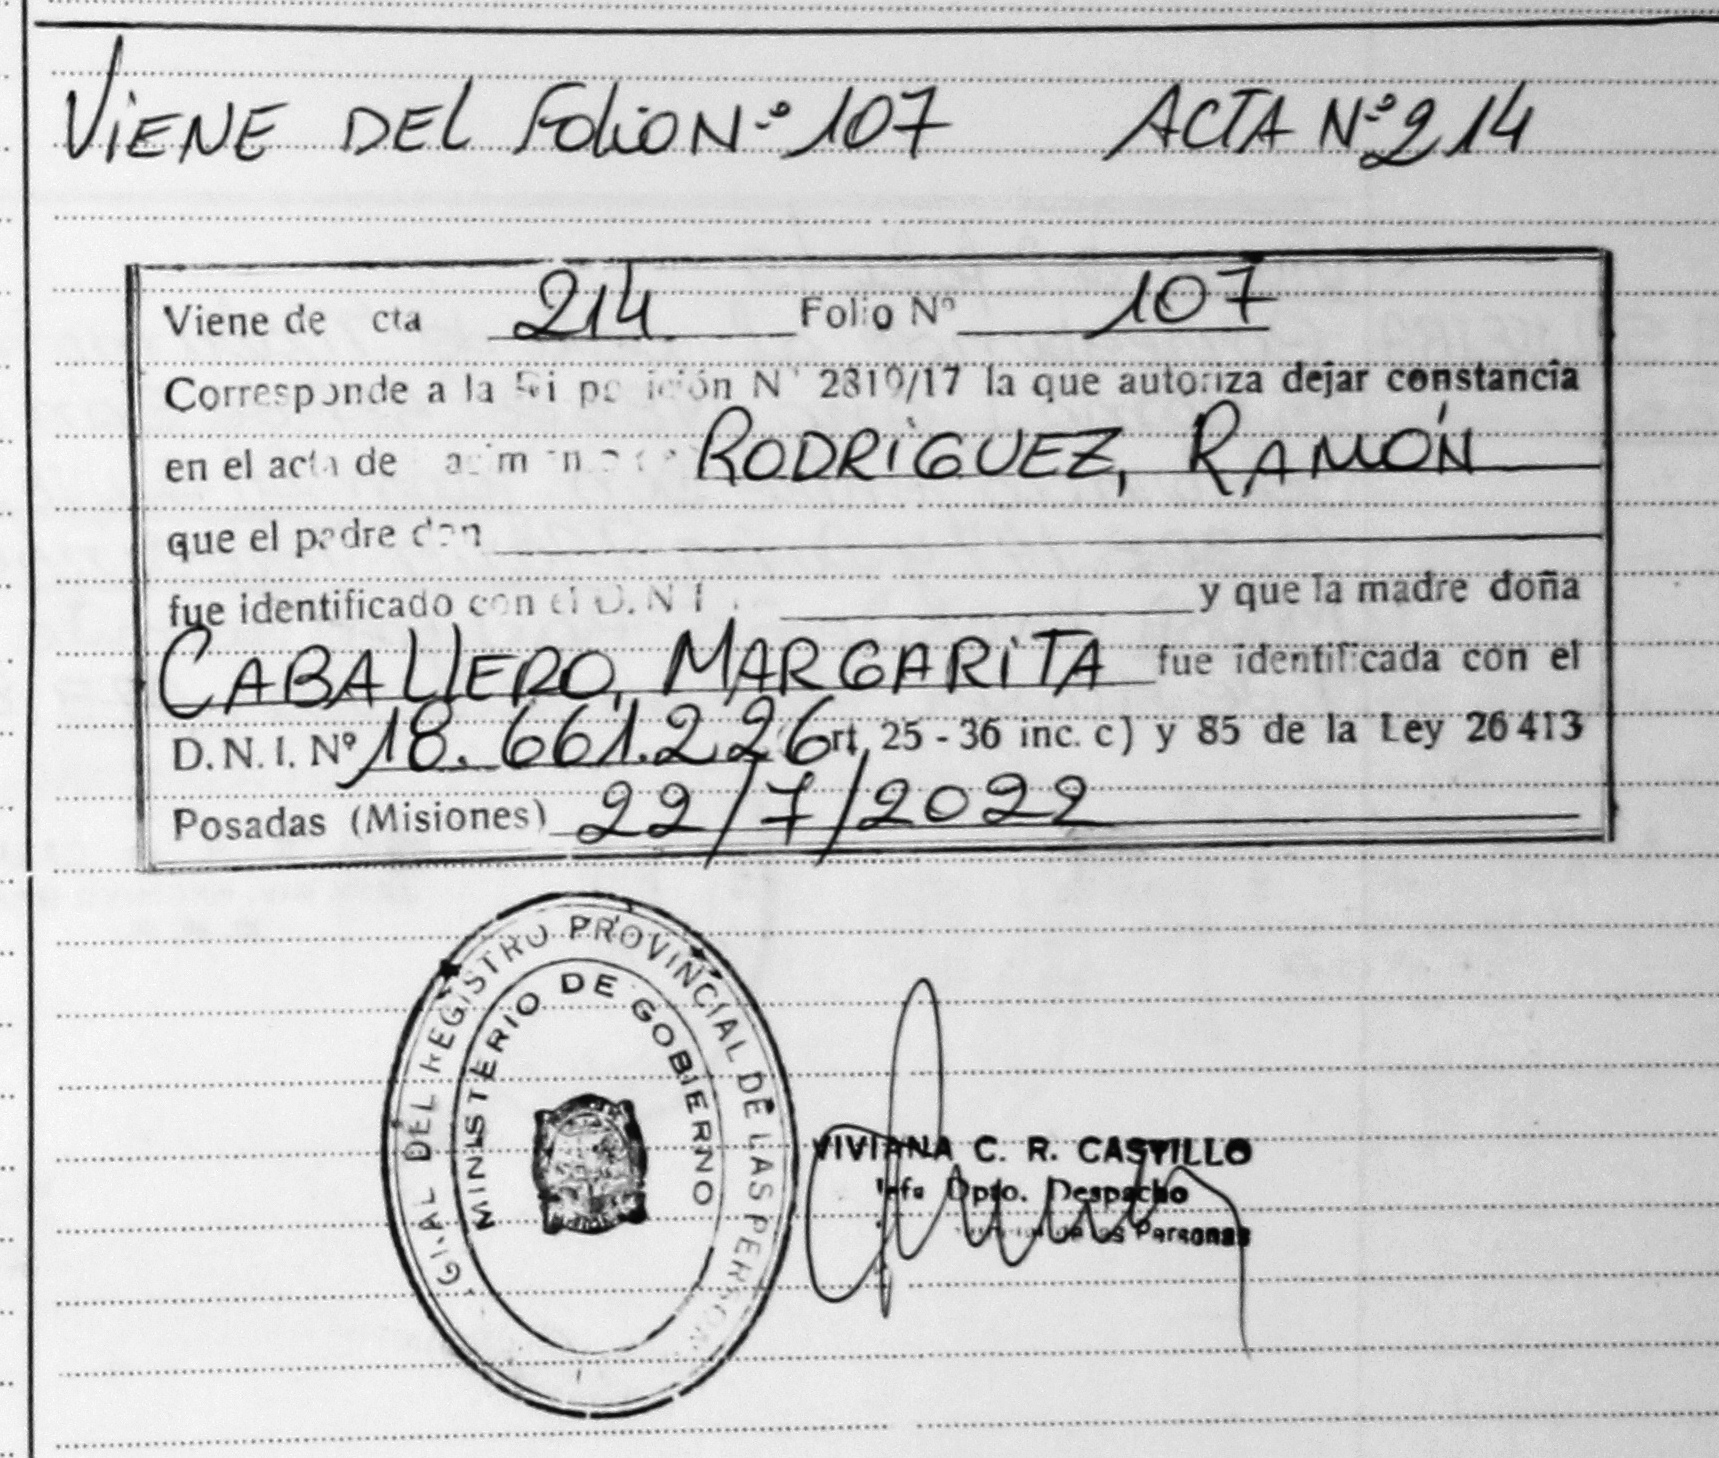 VIENE DEL FOLIO N.º 107 ACTA Nº 214
Viene de cta 214 Folio Nº 107
Corresponde a la N° 2310/17 la que autoriza dejar constancia
en el acta de RODRIGUEZ, RAMÓN
que el padre don
fue identificado con el D.N.I. y que la madre doña
CABALLERO, MARGARITA fue identificada con el
D.N.I. Nº 18.661.226 rt. 25 - 36 inc. c) y 85 de la Ley 26413
Posadas (Misiones) 22/7/2022
DEL REGISTRO PROVINCIAL DE LAS PERSON
MINISTERIO DE GOBIERNO
VIVIANA C. R. CASTILLO
Jefe Dpto. Despacho
de las Personas